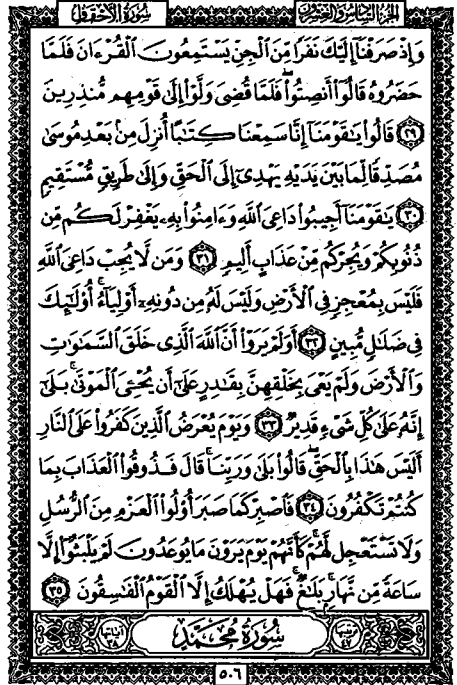 سُورَةُ الأَحْقَافِ الجُزْءُ السَّادِسُ وَالعِشْرُونَ
وَإِذْ صَرَفْنَآ إِلَيْكَ نَفَرًا مِّنَ ٱلْجِنِّ يَسْتَمِعُونَ ٱلْقُرْءَانَ فَلَمَّا
حَضَرُوهُ قَالُوٓا۟ أَنصِتُوا۟ۖ فَلَمَّا قُضِىَ وَلَّوْا۟ إِلَىٰ قَوْمِهِم مُّنذِرِينَ
٢٩ قَالُوا۟ يَٰقَوْمَنَآ إِنَّا سَمِعْنَا كِتَٰبًا أُنزِلَ مِنۢ بَعْدِ مُوسَىٰ
مُصَدِّقًا لِّمَا بَيْنَ يَدَيْهِ يَهْدِىٓ إِلَى ٱلْحَقِّ وَإِلَىٰ طَرِيقٍ مُّسْتَقِيمٍ
٣٠ يَٰقَوْمَنَآ أَجِيبُوا۟ دَاعِىَ ٱللَّهِ وَءَامِنُوا۟ بِهِۦ يَغْفِرْ لَكُم مِّن
ذُنُوبِكُمْ وَيُجِرْكُم مِّنْ عَذَابٍ أَلِيمٍ ٣١ وَمَن لَّا يُجِبْ دَاعِىَ ٱللَّهِ
فَلَيْسَ بِمُعْجِزٍ فِى ٱلْأَرْضِ وَلَيْسَ لَهُۥ مِن دُونِهِۦٓ أَوْلِيَآءُۚ أُو۟لَٰٓئِكَ
فِى ضَلَٰلٍ مُّبِينٍ ٣٢ أَوَلَمْ يَرَوْا۟ أَنَّ ٱللَّهَ ٱلَّذِى خَلَقَ ٱلسَّمَٰوَٰتِ
وَٱلْأَرْضَ وَلَمْ يَعْىَ بِخَلْقِهِنَّ بِقَٰدِرٍ عَلَىٰٓ أَن يُحْـِۧىَ ٱلْمَوْتَىٰۚ بَلَىٰٓ
إِنَّهُۥ عَلَىٰ كُلِّ شَىْءٍ قَدِيرٌ ٣٣ وَيَوْمَ يُعْرَضُ ٱلَّذِينَ كَفَرُوا۟ عَلَى ٱلنَّارِ
أَلَيْسَ هَٰذَا بِٱلْحَقِّۖ قَالُوا۟ بَلَىٰ وَرَبِّنَاۚ قَالَ فَذُوقُوا۟ ٱلْعَذَابَ بِمَا
كُنتُمْ تَكْفُرُونَ ٣٤ فَٱصْبِرْ كَمَا صَبَرَ أُو۟لُوا۟ ٱلْعَزْمِ مِنَ ٱلرُّسُلِ
وَلَا تَسْتَعْجِل لَّهُمْۚ كَأَنَّهُمْ يَوْمَ يَرَوْنَ مَا يُوعَدُونَ لَمْ يَلْبَثُوٓا۟ إِلَّا
سَاعَةً مِّن نَّهَارٍۭۚ بَلَٰغٌۚ فَهَلْ يُهْلَكُ إِلَّا ٱلْقَوْمُ ٱلْفَٰسِقُونَ ٣٥
ترتيبها ٤٧ سُورَةُ مُحَمَّدٍ آياتها ٣٨
٥٠٦